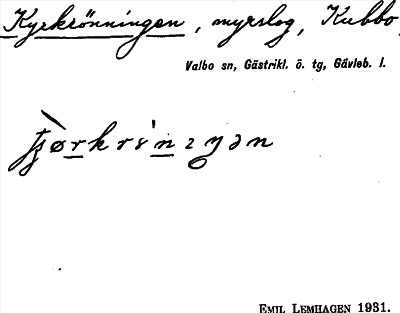 Kyrkrönningen, myrslog, Kubbo,
Valbo sn, Gästrikl. ö. tg, Gävleb. l.
EMIL LEMHAGEN 1931.